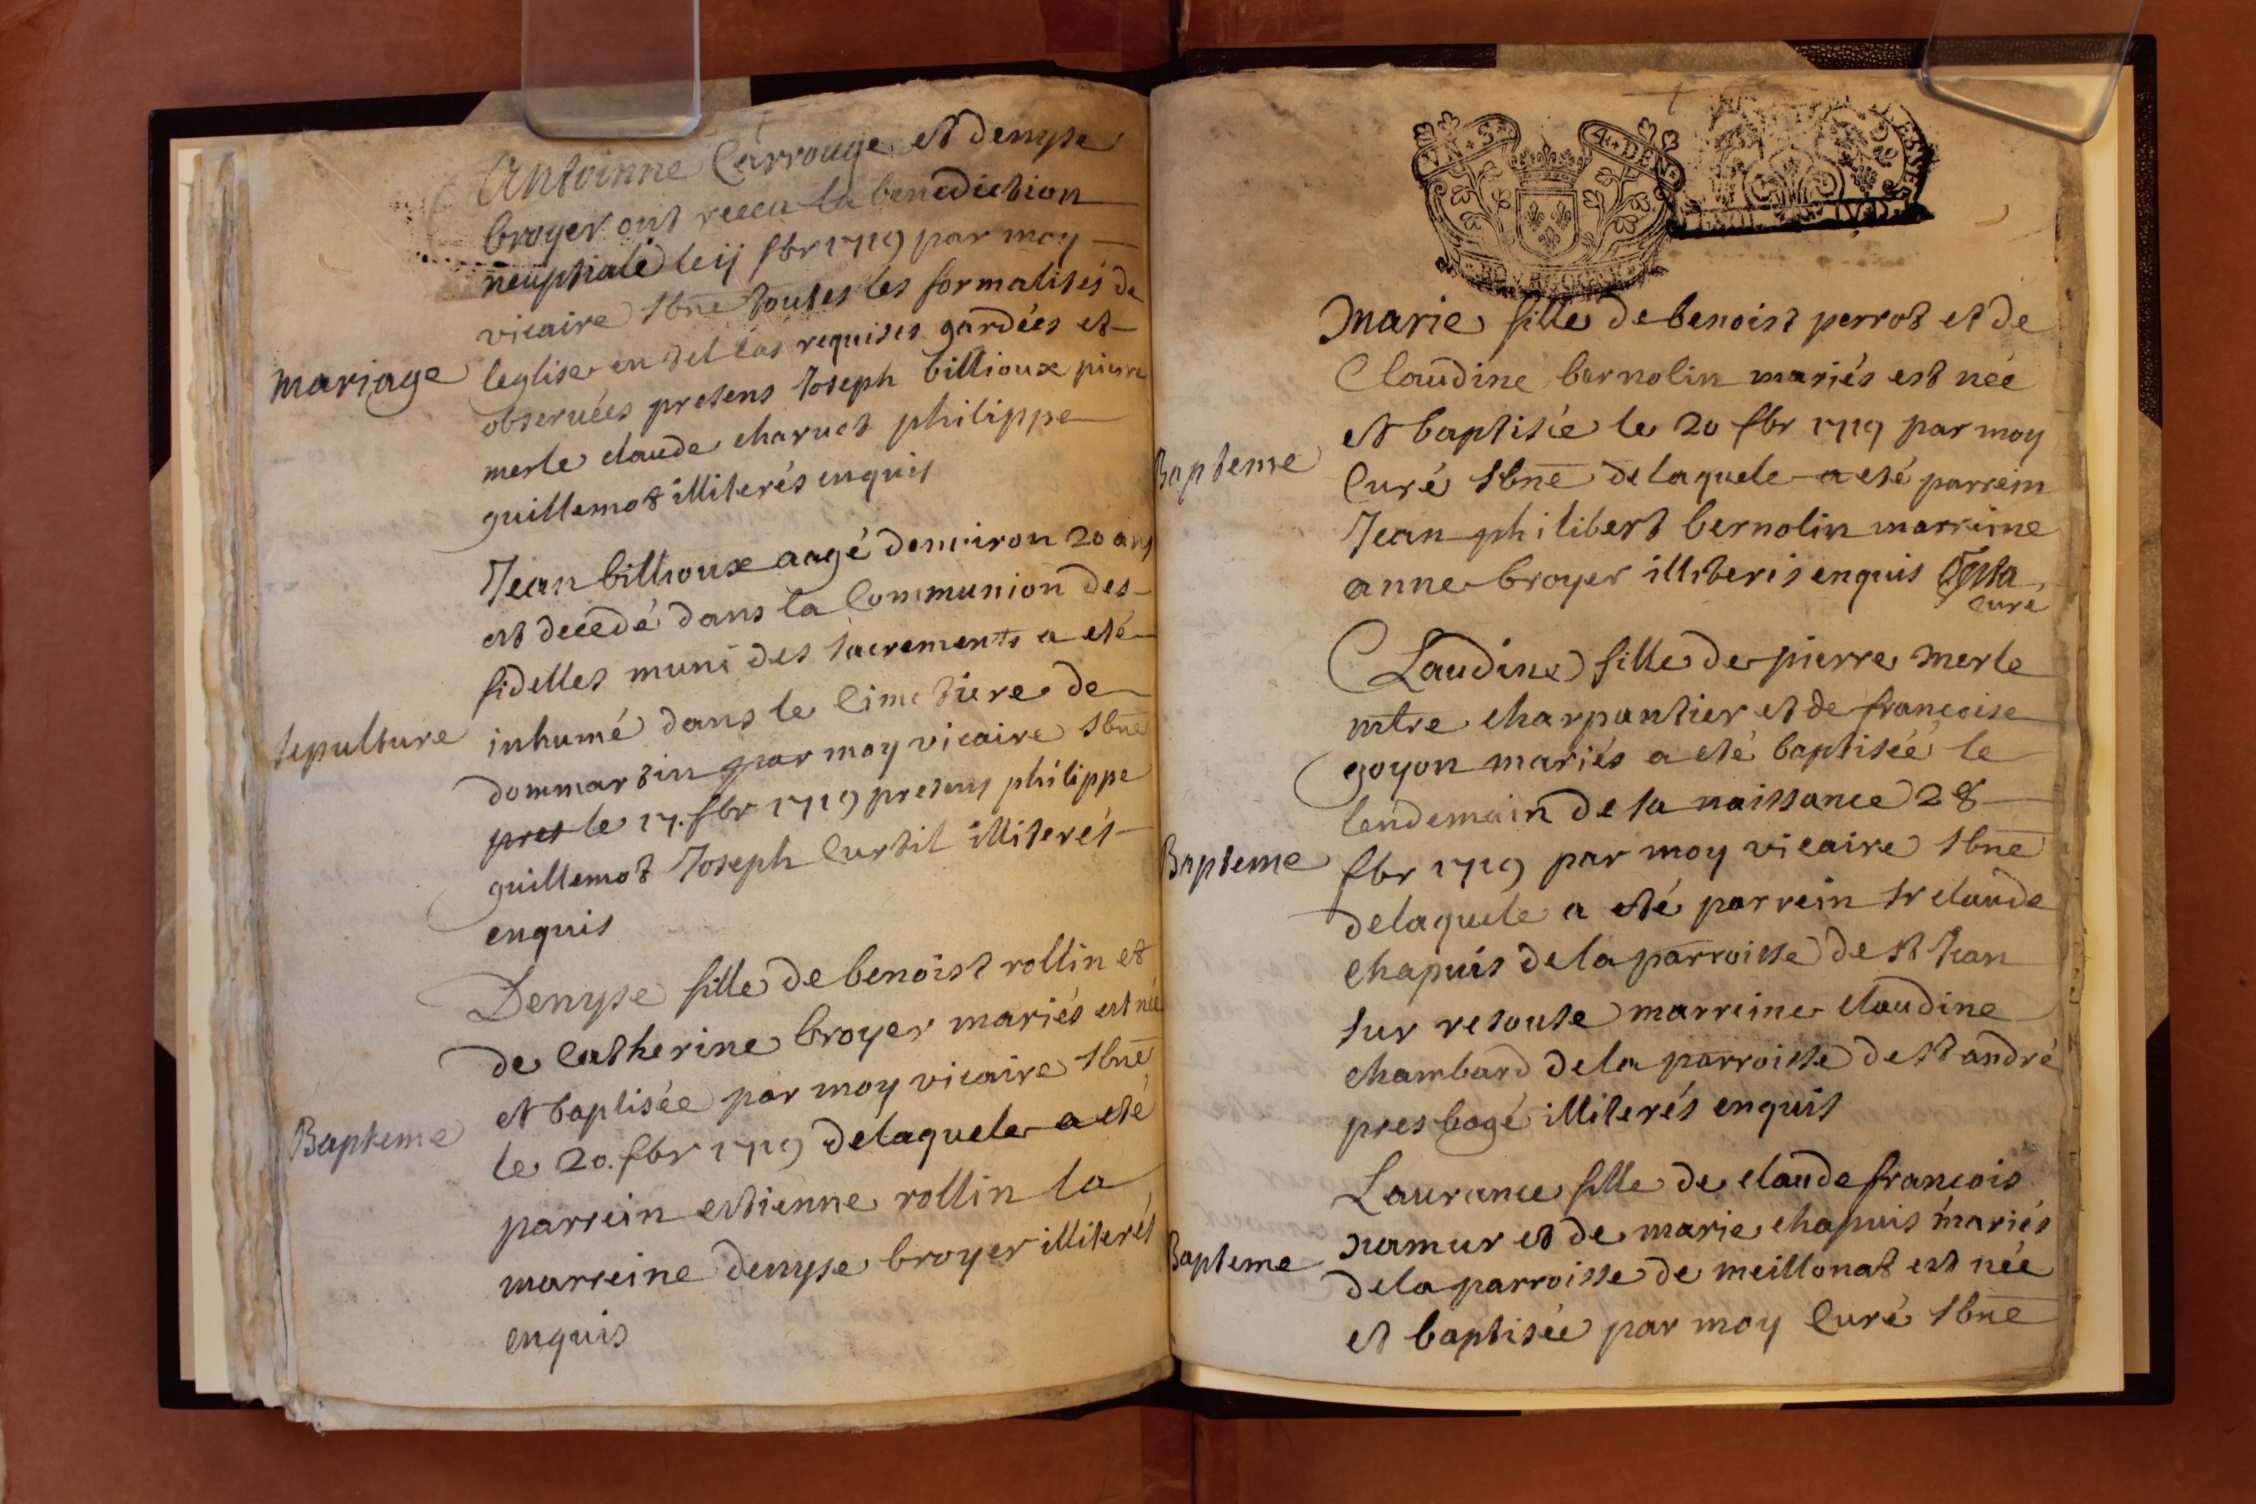 Antoinne Carrouge et denyse
broyer ont receu la benediction
neuptiale le ij fbr 1719 par moy
vicaire sbnē toutes les formalités de
leglise en tel cas requises gardées et
mariage
observées presens Joseph billioux pierre
merle claude charvet philippe
guillemot illiterés enquis
Jean billioux aagé denviron 20 ans
est decedé dans la Communion des
fidelles muni des sacrements a eté
inhumé dans le Cimetiere de
sepulture
dommartin par moy vicaire sbnē
pres le 17. fbr 1719 presens philippe
guillemot Joseph Curtil illiterés
enquis
Denyse fille de benoist rollin et
de Catherine broyer mariés est née
et baptisée par moy vicaire sbnē
Bapteme
le 20. fbr 1719 delaquele a eté
parrein estienne rollin la
marreine denyse broyer illiterés
enquis
VN · S · 4 · DEN ·
marie fille de benoist perrot et de
Claudine bernolin mariés est née
et baptisée le 20 fbr 1719 par moy
Bapteme
Curé sbnē delaquele a eté parrein
Jean philibert bernolin marreine
anne broyer illiteris enquis
curé
Claudine fille de pierre merle
mtre charpantier et de francoise
goyon mariés a eté baptisée le
lendemain de sa naissance 28
Bapteme
fbr 1719 par moy vicaire sbnē
delaquele a eté parrein sr claude
chapuis de la parroisse de st Jean
sur resouse marreine claudine
chambard de la parroisse de st andré
pres bagé illiterés enquis
Laurance fille de claude francois
namur et de marie chapuis mariés
Bapteme
de la parroisse de meillonat est née
et baptisée par moy Curé sbnē